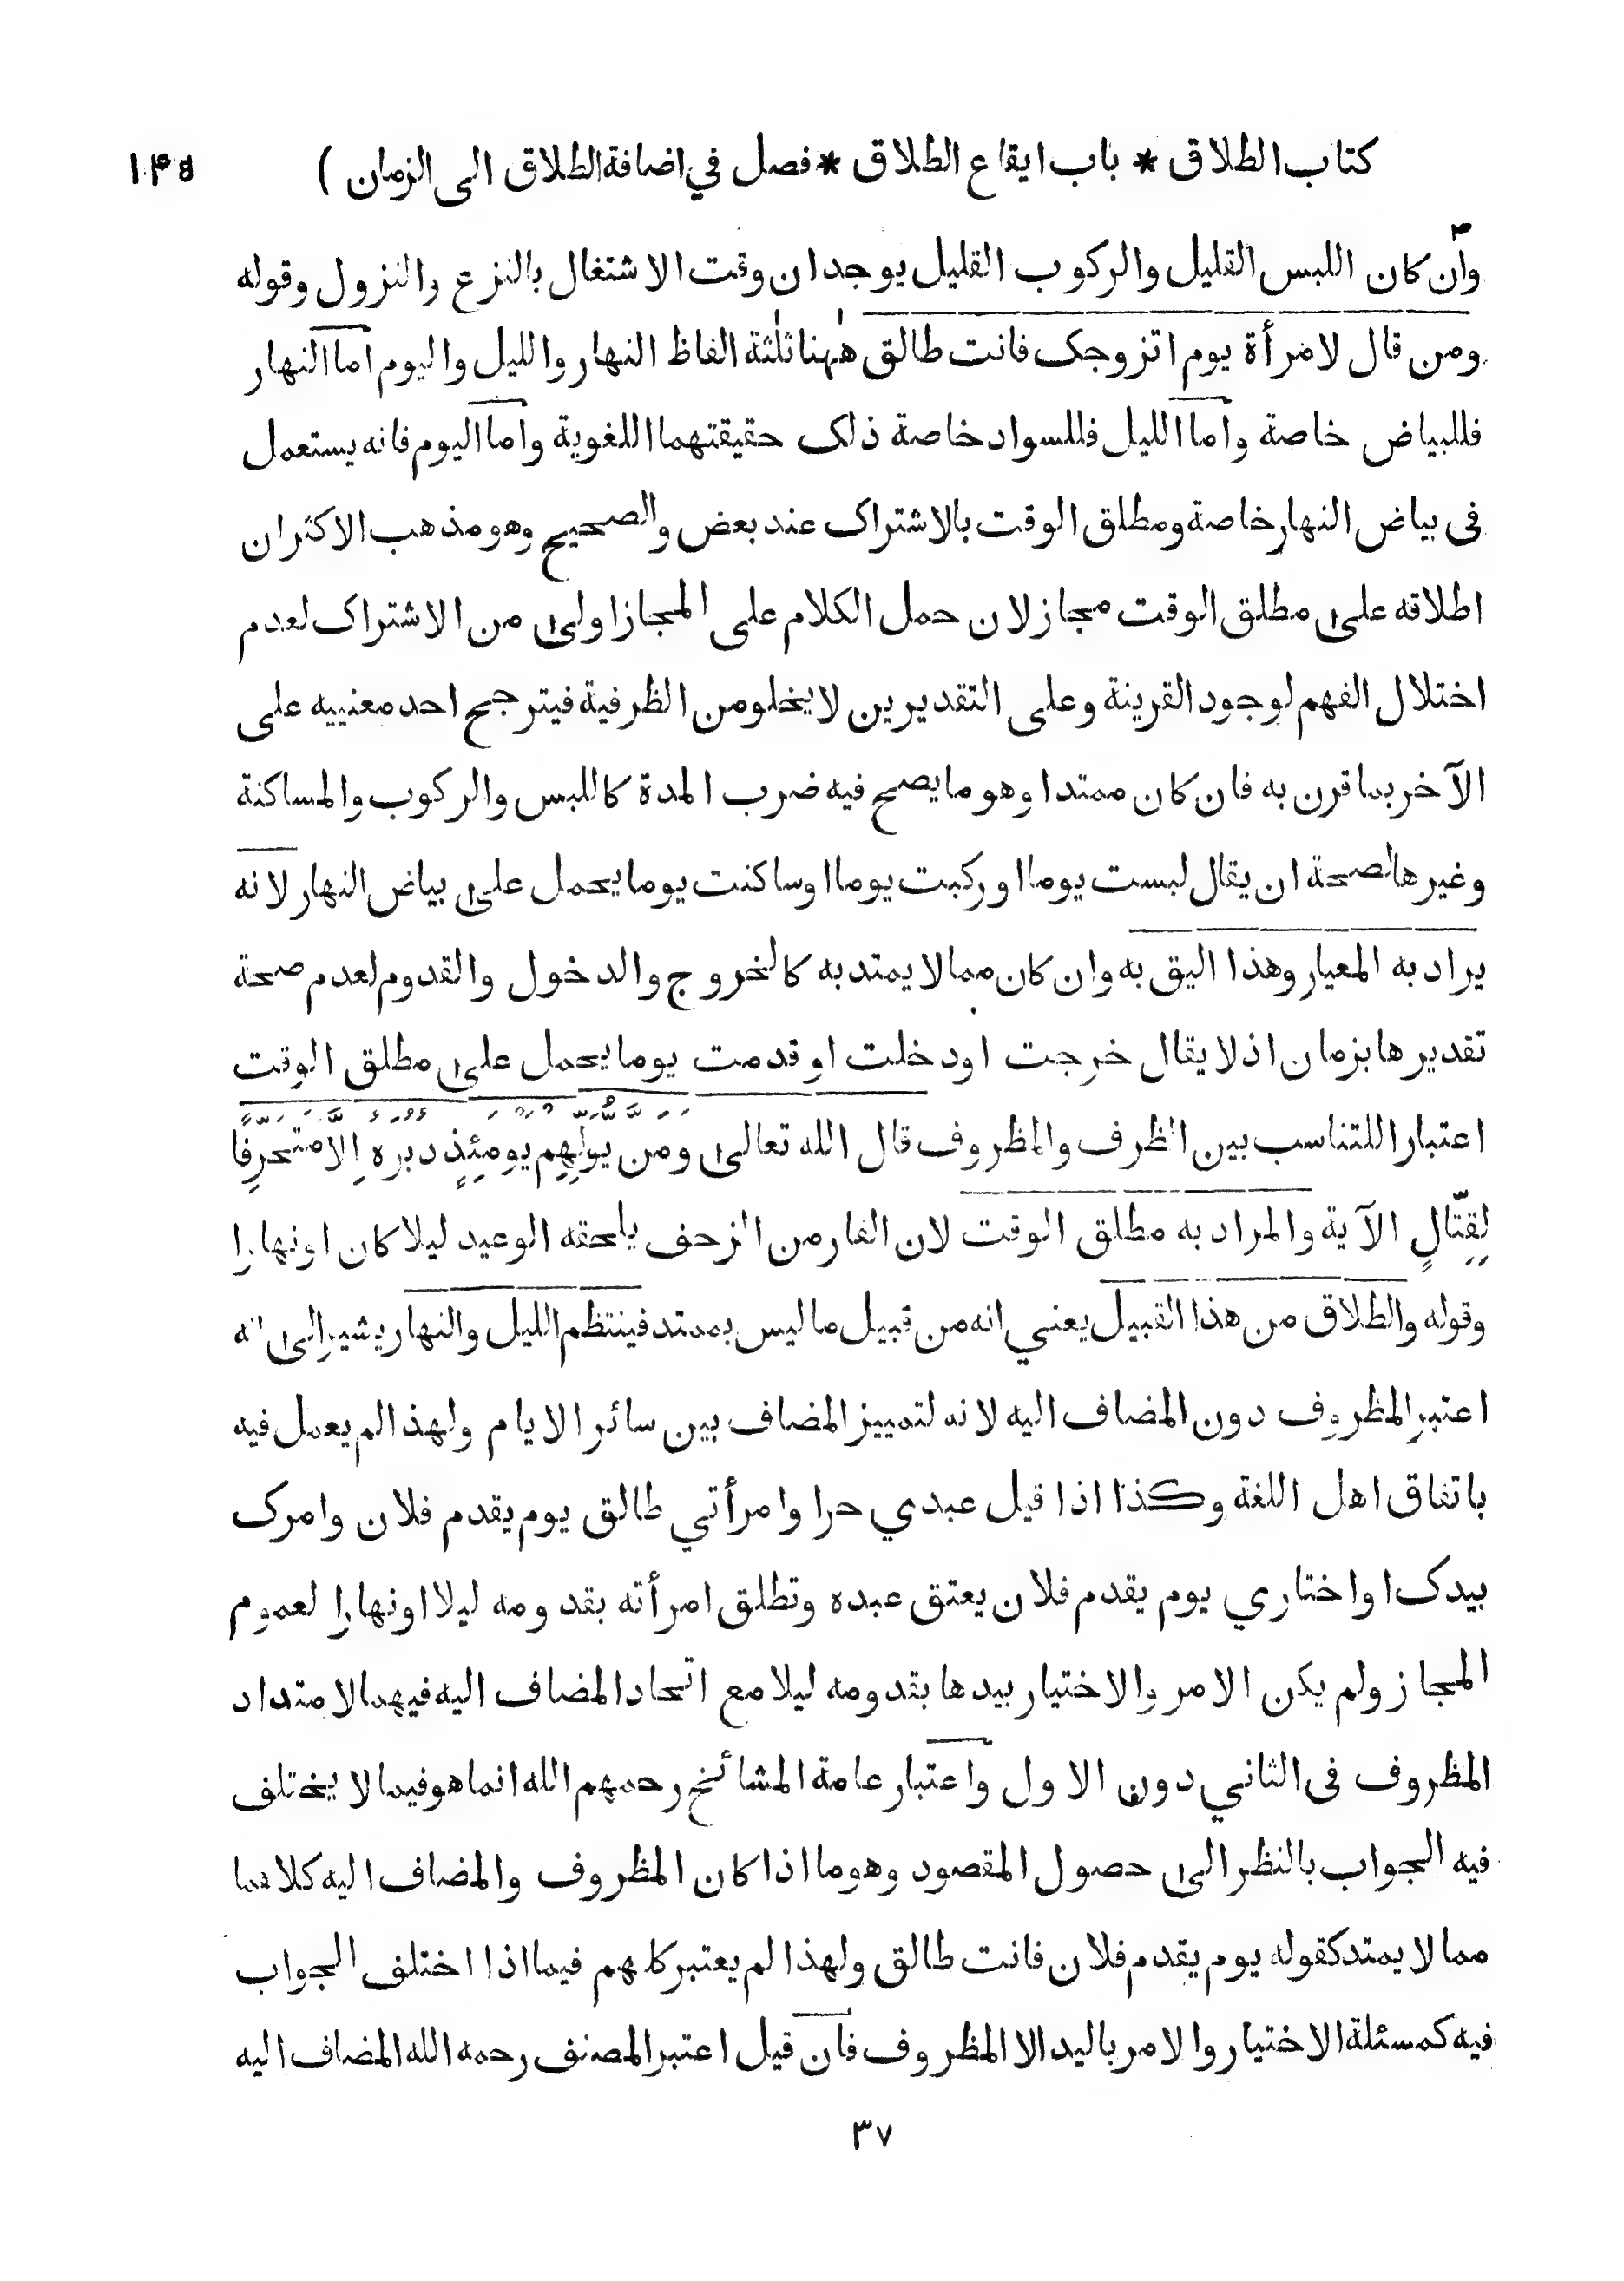 كتاب الطلاق * باب ايقاع الطلاق * فصل في اضافة الطلاق الى الزمان ) ١٤٥
وان كان اللبس القليل والركوب القليل يوجدان وقت الاشتغال بالنزع والنزول وقوله
ومن قال لامرأة يوم اتزوجك فانت طالق هٰهنا ثلٰثة الفاظ النهار والليل واليوم اما النهار
فللبياض خاصة واما الليل فللسواد خاصة ذلك حقيقتهما اللغوية واما اليوم فانه يستعمل
فى بياض النهار خاصة ومطلق الوقت بالاشتراك عند بعض والصحيح وهو مذهب الاكثر ان
اطلاقه على مطلق الوقت مجاز لان حمل الكلام على المجاز اولى من الاشتراك لعدم
اختلال الفهم لوجود القرينة وعلى التقديرين لا يخلو من الظرفية فيترجح احد معنييه على
الآخر بما قرن به فان كان ممتدا وهو ما يصح فيه ضرب المدة كاللبس والركوب والمساكنة
وغيرها لصحة ان يقال لبست يوما او ركبت يوما او ساكنت يوما يحمل على بياض النهار لانه
يراد به المعيار وهذا اليق به وان كان مما لا يمتد به كالخروج والدخول والقدوم لعدم صحة
تقديرها بزمان اذ لا يقال خرجت او دخلت او قدمت يوما يحمل على مطلق الوقت
اعتبارا للتناسب بين الظرف والمظروف قال الله تعالى وَمَنْ يُّوَلِّهِمْ يَوْمَئِذٍ دُبُرَهُ اِلَّا مُتَحَرِّفًا
لِّقِتَالٍ الآية والمراد به مطلق الوقت لان الفار من الزحف يلحقه الوعيد ليلا كان او نهارا
وقوله والطلاق من هذا القبيل يعني انه من قبيل ما ليس بممتد فينتظم الليل والنهار يشير الى انه
اعتبر المظروف دون المضاف اليه لانه لتمييز المضاف بين سائر الايام ولهذا لم يعمل فيه
باتفاق اهل اللغة وكذا اذا قيل عبدي حرا وامرأتي طالق يوم يقدم فلان وامرك
بيدك او اختاري يوم يقدم فلان يعتق عبده وتطلق امرأته بقدومه ليلا او نهارا لعموم
المجاز ولم يكن الامر والاختيار بيدها بقدومه ليلا مع اتحاد المضاف اليه فيهما لامتداد
المظروف فى الثاني دون الاول واعتبار عامة المشائخ رحمهم الله انما هو فيما لا يختلف
فيه الجواب بالنظر الى حصول المقصود وهو ما اذا كان المظروف والمضاف اليه كلاهما
مما لا يمتد كقوله يوم يقدم فلان فانت طالق ولهذا لم يعتبر كلهم فيما اذا اختلف الجواب
فيه كمسئلة الاختيار والامر باليد الا المظروف فان قيل اعتبر المصنف رحمه الله المضاف اليه
٣٧